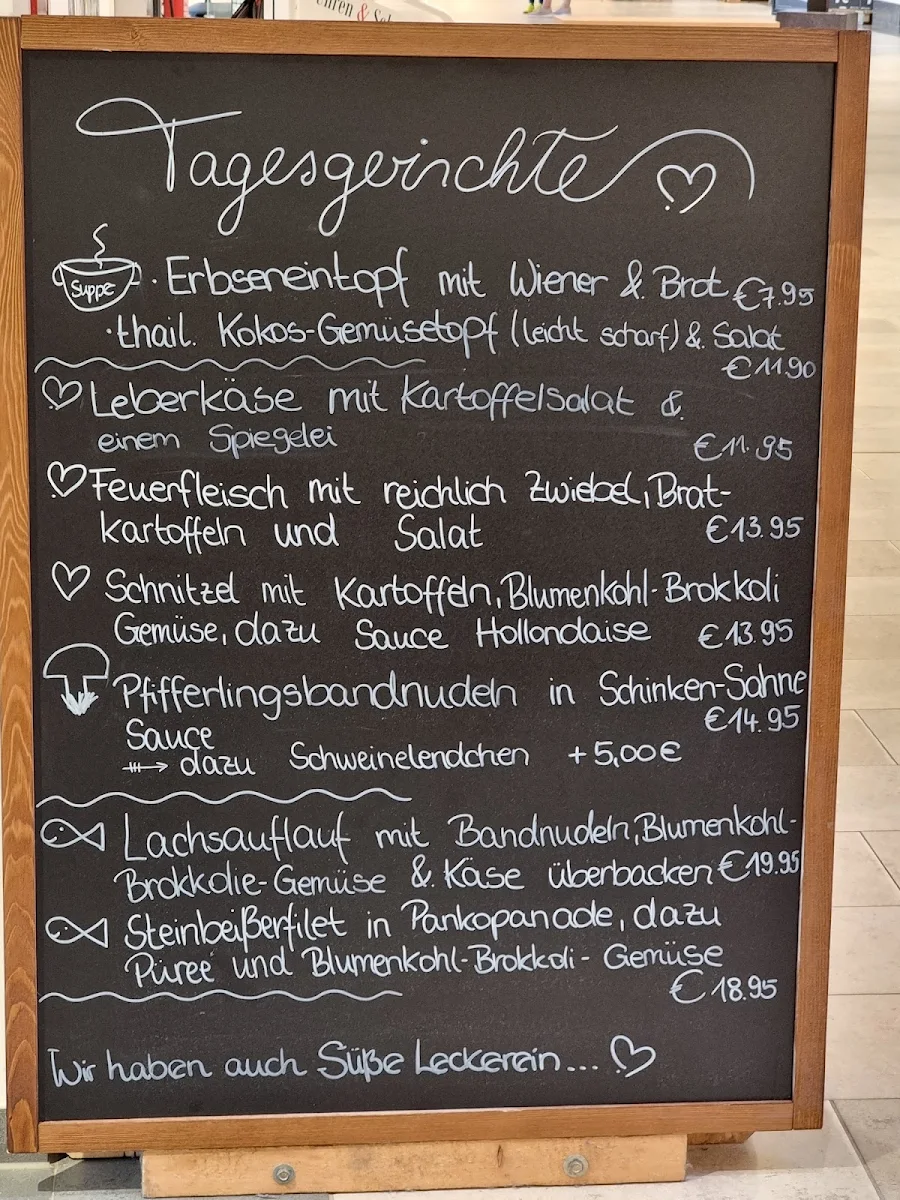 Tagesgerichte
Suppe · Erbseneintopf mit Wiener & Brot €7.95
· thail. Kokos-Gemüsetopf (leicht scharf) & Salat
€11.90
Leberkäse mit Kartoffelsalat &
einem Spiegelei €11.95
Feuerfleisch mit reichlich Zwiebel, Brat-
kartoffeln und Salat €13.95
Schnitzel mit Kartoffeln, Blumenkohl-Brokkoli
Gemüse, dazu Sauce Hollondaise €13.95
Pfifferlingsbandnudeln in Schinken-Sahne
€14.95
Sauce
dazu Schweinelendchen +5,00€
Lachsauflauf mit Bandnudeln, Blumenkohl-
Brokkolie-Gemüse & Käse überbacken €19.95
Steinbeißerfilet in Pankopanade, dazu
Püree und Blumenkohl-Brokkoli-Gemüse
€18.95
Wir haben auch Süße Leckerein...